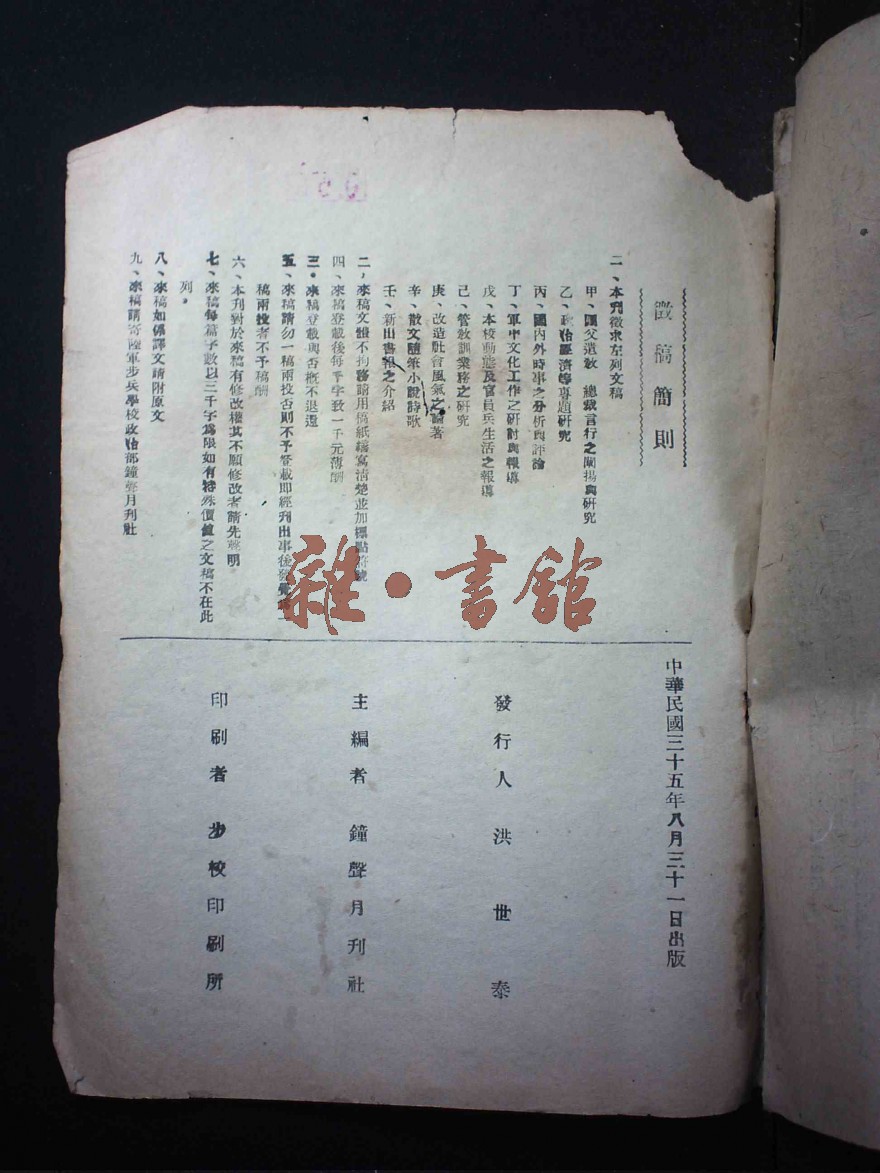 徵稿簡則
二、本刊徵求左列文稿
甲、國父遺敎　總裁言行之闡揚與研究
乙、政治經濟等專題研究
丙、國內外時事之分析與評論
丁、軍中文化工作之研討與報導
戊、本校動態及官員兵生活之報導
己、管敎訓業務之研究
庚、改造社會風氣之論著
辛、散文隨筆小說詩歌
壬、新出書報之介紹
二，來稿文體不拘務請用稿紙繕寫淸楚並加標點符號
四、來稿登載後每千字致一千元薄酬
三・來稿登載與否槪不退還
五、來稿請勿一稿兩投否則不予登載即經刋出事後發覺一
稿兩投者不予稿酬
六、本刊對於來稿有修改權其不願修改者請先聲明
七、來稿每篇字數以三千字爲限如有特殊價値之文稿不在此
列。
八、來稿如係譯文請附原文
九、來稿請寄陸軍步兵學校政治部鐘聲月刊社
中華民國三十五年八月三十一日出版
發行人　洪世泰
主編者　鐘聲月刊社
印刷者　步校印刷所
雜・書館